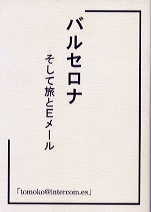 バルセロナ
そして旅とEメール
「tomoko@intercom.es」